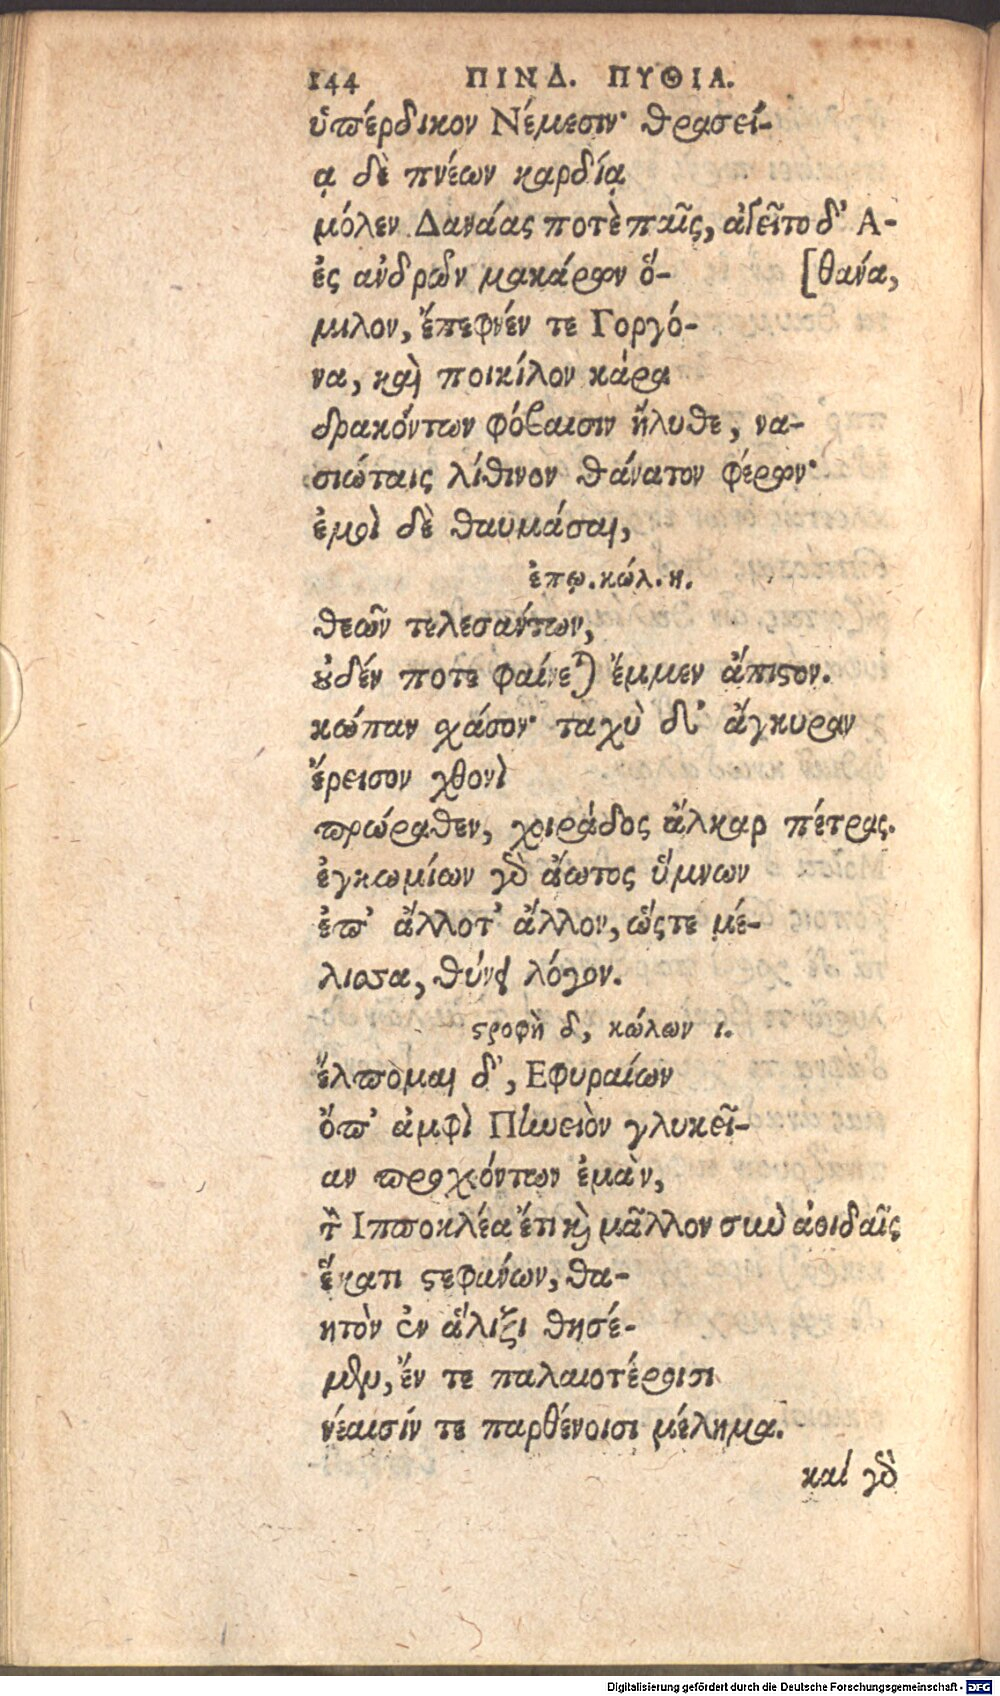 144 ΠΙΝΔ. ΠΥΘΙΑ.
ὑπέρδικον Νέμεσιν· θρασεί-
ᾳ δὲ πνέων καρδίᾳ
μόλεν Δανάας ποτὲ παῖς, ἁγεῖτο δ' Α-
ἐς ἀνδρῶν μακάρων ὅ- [θανά,
μιλον, ἔπεφνέν τε Γοργό-
να, καὶ ποικίλον κάρα
δρακόντων φόβαισιν ἤλυθε, να-
σιώταις λίθινον θάνατον φέρων·
ἐμοὶ δὲ θαυμάσαι,
ἐπῳ. κώλ. η.
θεῶν τελεσάντων,
οὐδέν ποτε φαίνεται ἔμμεν ἄπιστον.
κώπαν χάσον· ταχὺ δ' ἄγκυραν
ἔρεισον χθονὶ
πρώραθεν, χοιράδος ἄλκαρ πέτρας.
ἐγκωμίων γὸ ἄωτος ὕμνων
ἐπ' ἄλλοτ' ἄλλον, ὥςτε μέ-
λισσα, θύνει λόγον.
στροφὴ δ, κώλων ι.
ἔλπομαι δ', Εφυραίων
ὄπ' ἀμφὶ Πηνειὸν γλυκεῖ-
αν προχόντων ἐμὰν,
τὸν Ιπποκλέα ἔτι καὶ μᾶλλον σὺν ἀοιδαῖς
ἕκατι στεφάνων, θα-
ητὸν ἐν ἅλιξι θησέ-
μεν, ἔν τε παλαιοτέροισι
νέαισίν τε παρθένοισι μέλημα.
καὶ γὸ
Digitalisierung gefördert durch die Deutsche Forschungsgemeinschaft - DFG